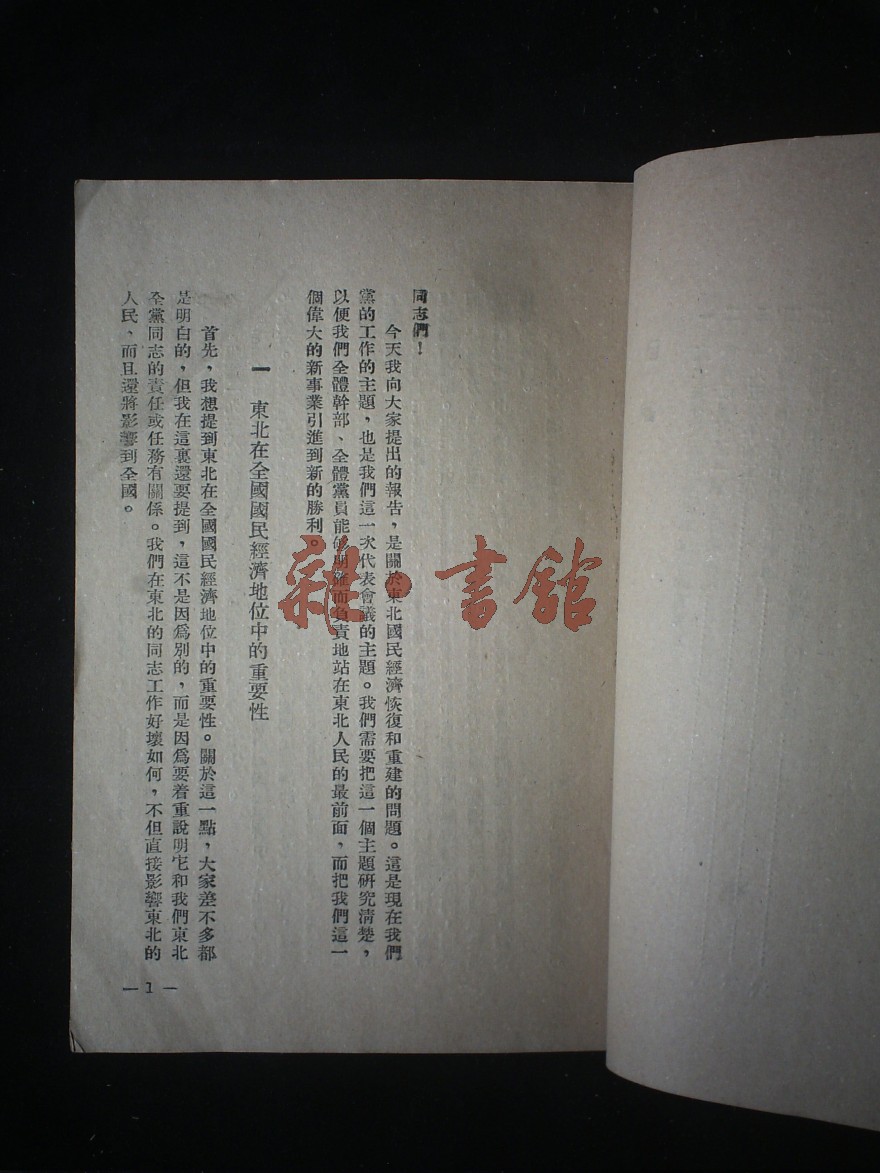 同志們！
今天我向大家提出的報告，是關於東北國民經濟恢復和重建的問題。這是現在我們
黨的工作的主題，也是我們這一次代表會議的主題。我們需要把這一個主題研究清楚，
以便我們全體幹部、全體黨員能够明確而負責地站在東北人民的最前面，而把我們這一
個偉大的新事業引進到新的勝利。
一　東北在全國國民經濟地位中的重要性
首先，我想提到東北在全國國民經濟地位中的重要性。關於這一點，大家差不多都
是明白的，但我在這裏還要提到，這不是因爲別的，而是因爲要着重說明它和我們東北
全黨同志的責任或任務有關係。我們在東北的同志工作好壞如何，不但直接影響東北的
人民、而且還將影響到全國。
— 1 —
雜·書館